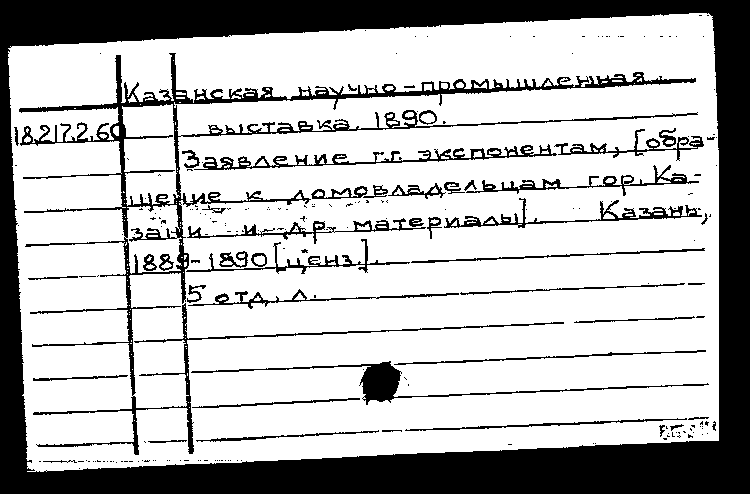 Казанская научно-промышленная
18.217.2.60 выставка. 1890.
Заявление г.г. экспонентам, [обра-
щение к домовладельцам гор. Ка-
зани и др. материалы]. Казань,
1889-1890 [ценз.].
5 отд. л.